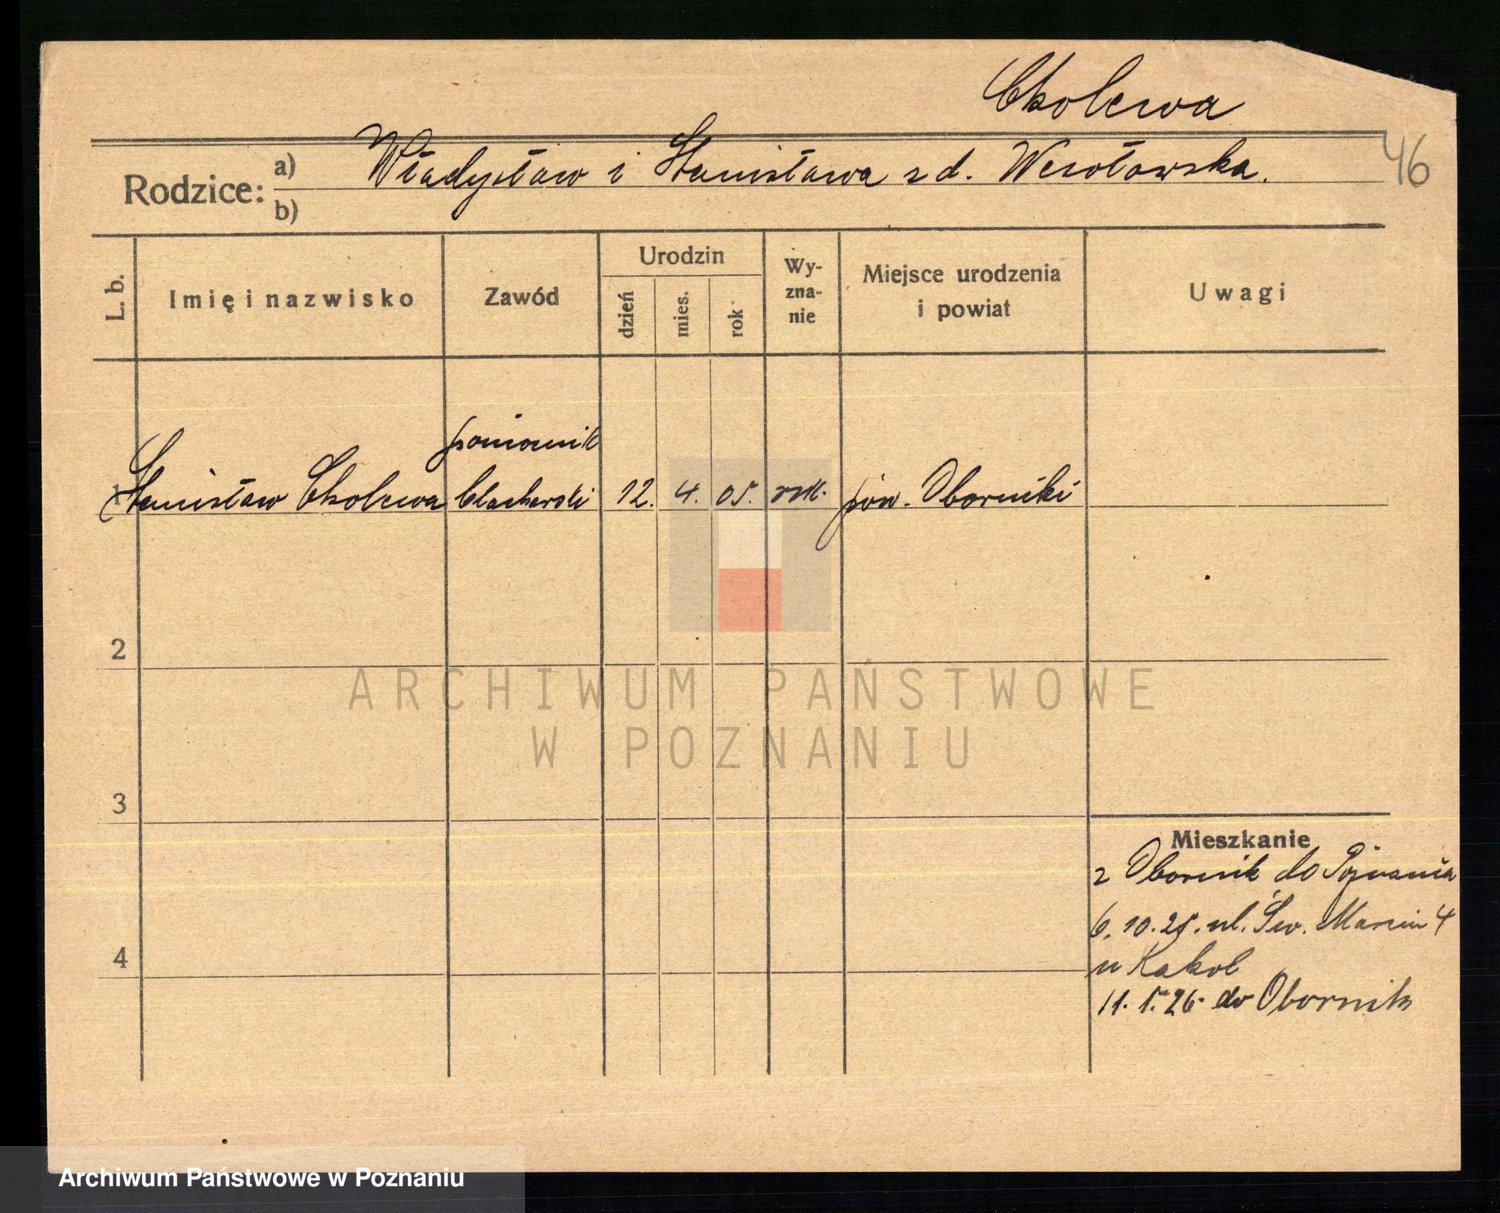 Cholewa
46
Rodzice: a) Władysław i Stanisława z d. Wesołowska.
b)
L. b.
Imię i nazwisko
Zawód
Urodzin
dzień
mies.
rok
Wy-
zna-
nie
Miejsce urodzenia
i powiat
Uwagi
pomocnik
1 Stanisław Cholewa blacharski 12. 4. 05. rzk. pow. Oborniki
2
ARCHIWUM PAŃSTWOWE
W POZNANIU
3
Mieszkanie
z Obornik do Poznania
6. 10. 25. ul. Św. Marcin 4
4
u Kakol
11. 1. 26. do Obornik
Archiwum Państwowe w Poznaniu